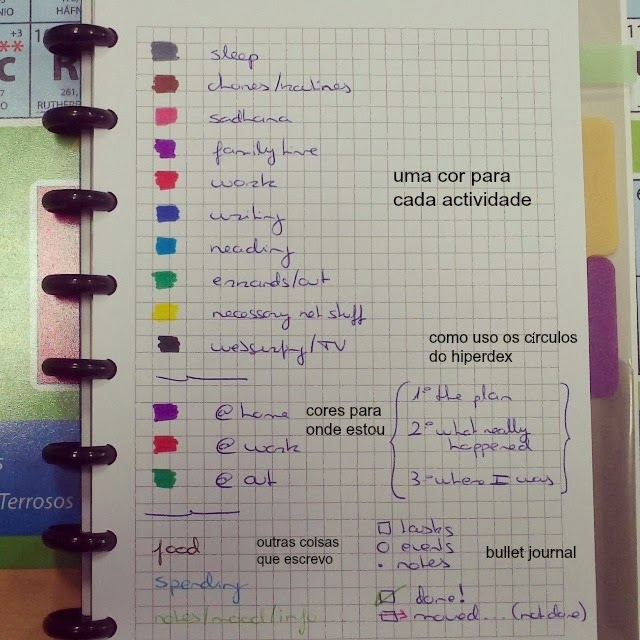 +3
**
C
R
HÁFN
261,
RUTHERF
sleep
chores/routines
sadhana
family time
work
uma cor para
cada actividade
writing
reading
errands/out
necessary net stuff
websurfing/TV
como uso os círculos
do hiperdex
@ home
@ work
@ out
cores para
onde estou
1º the plan
2º what really
happened
3º where I was
Terrosos
food
spending
notes/mood/info
outras coisas
que escrevo
tasks
events
notes
bullet journal
done!
moved... (not done)